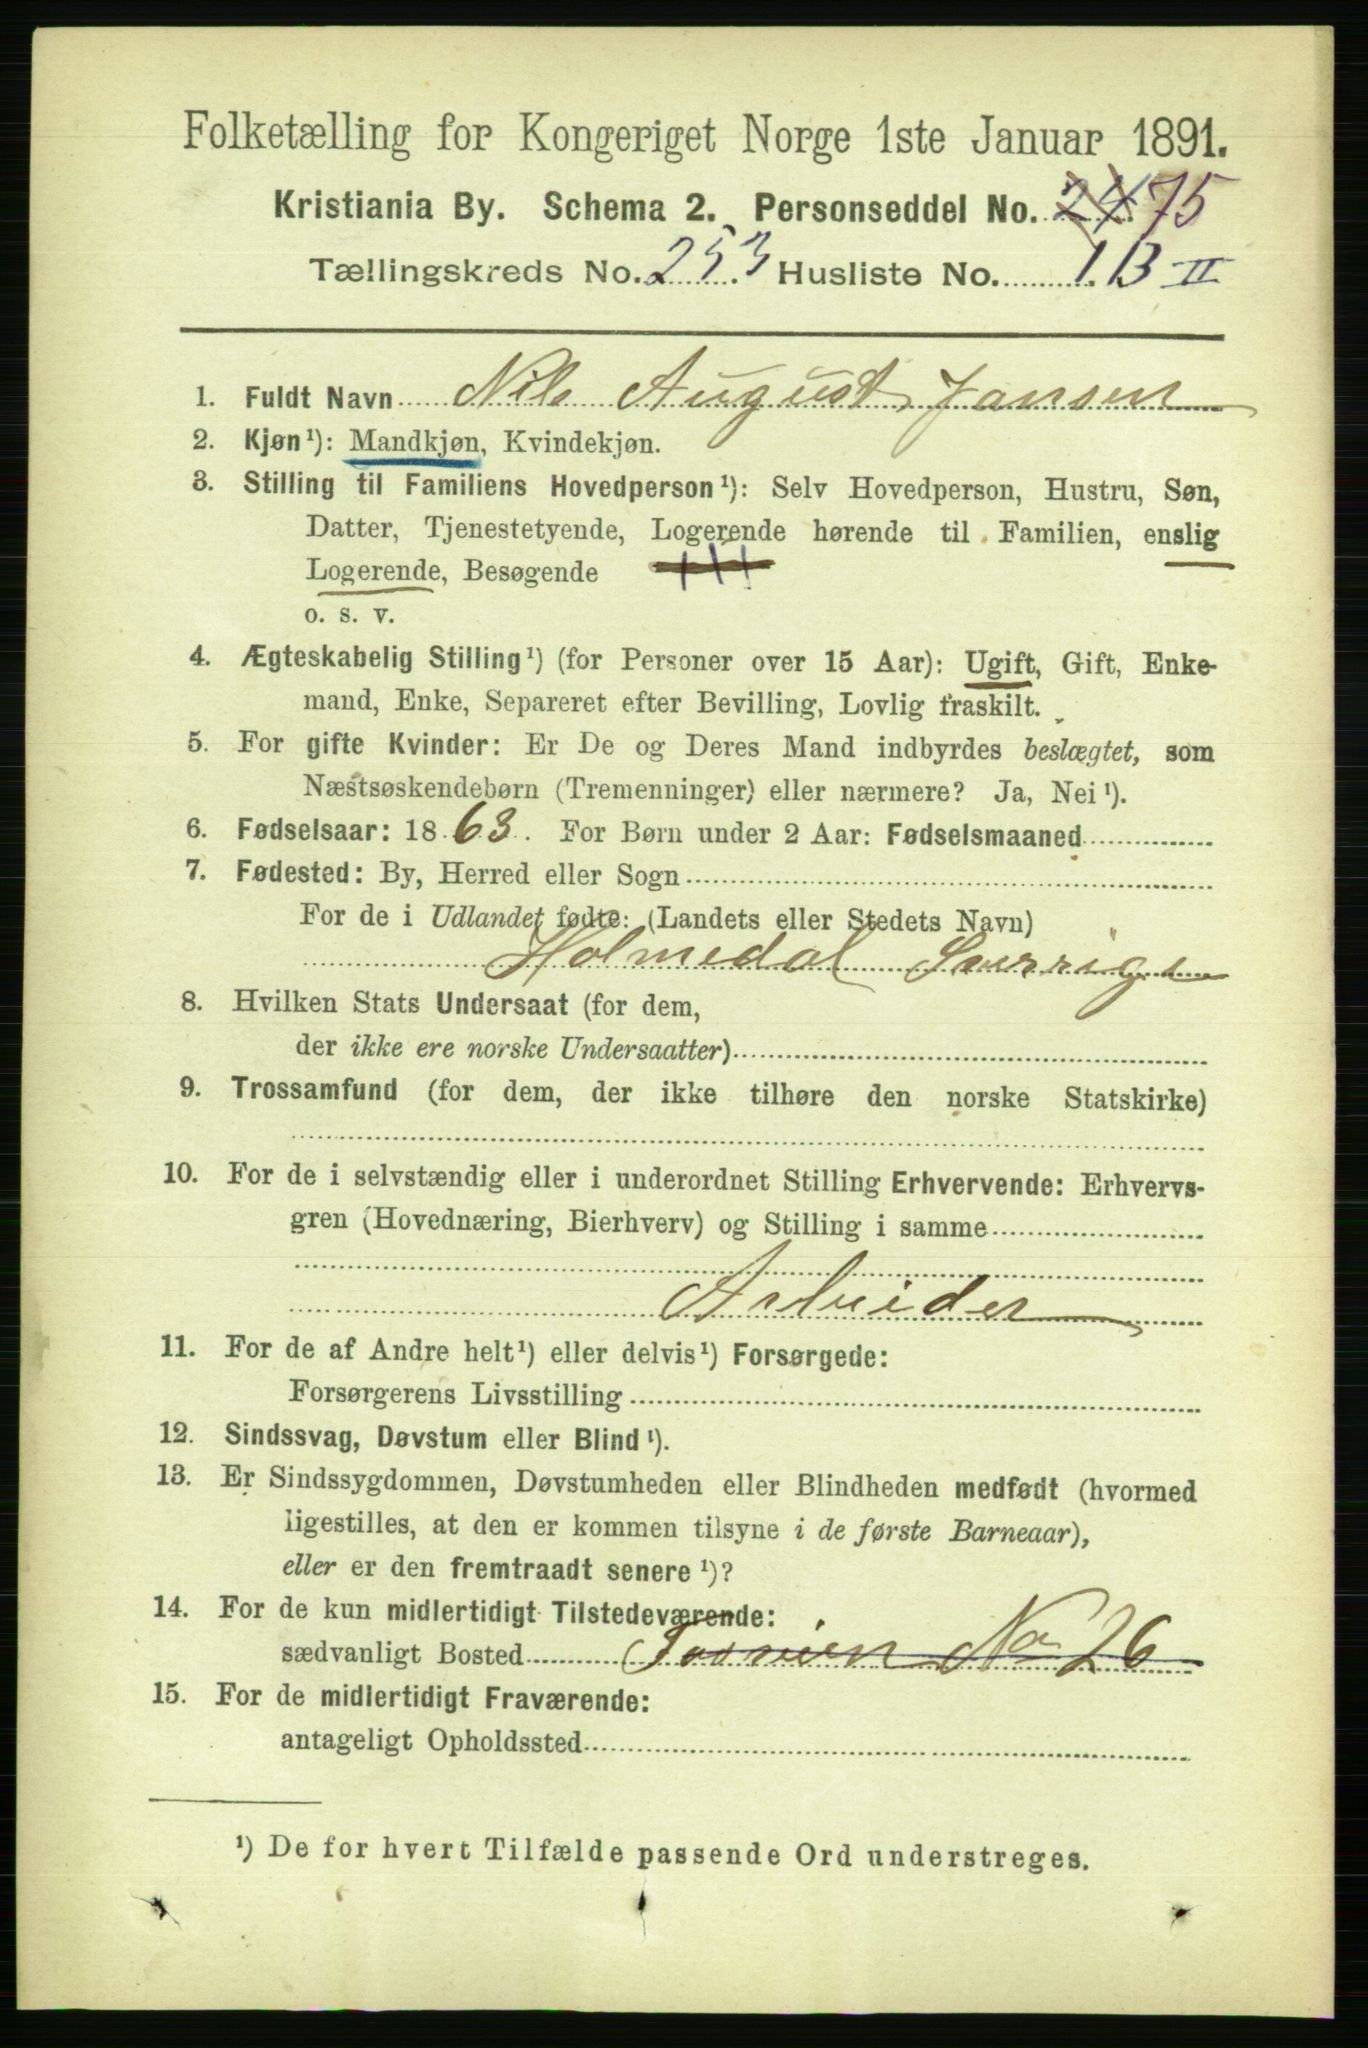 Folketælling for Kongeriget Norge 1ste Januar 1891.
Kristiania By. Schema 2. Personseddel No. 24 75
Tællingskreds No. 253 Husliste No. 1 B II
1. Fuldt Navn Nils August Jansen
2. Kjøn¹): Mandkjøn, Kvindekjøn.
3. Stilling til Familiens Hovedperson¹): Selv Hovedperson, Hustru, Søn,
Datter, Tjenestetyende, Logerende hørende til Familien, enslig
Logerende, Besøgende
o. s. v.
4. Ægteskabelig Stilling¹) (for Personer over 15 Aar): Ugift, Gift, Enke-
mand, Enke, Separeret efter Bevilling, Lovlig fraskilt.
5. For gifte Kvinder: Er De og Deres Mand indbyrdes beslægtet, som
Næstsøskendebørn (Tremenninger) eller nærmere? Ja, Nei¹).
6. Fødselsaar: 1863. For Børn under 2 Aar: Fødselsmaaned
7. Fødested: By, Herred eller Sogn
For de i Udlandet fødte: (Landets eller Stedets Navn)
Holmedal Sverrige
8. Hvilken Stats Undersaat (for dem,
der ikke ere norske Undersaatter)
9. Trossamfund (for dem, der ikke tilhøre den norske Statskirke)
10. For de i selvstændig eller i underordnet Stilling Erhvervende: Erhvervs-
gren (Hovednæring, Bierhverv) og Stilling i samme
Arbeider
11. For de af Andre helt¹) eller delvis¹) Forsørgede:
Forsørgerens Livsstilling
12. Sindssvag, Døvstum eller Blind¹).
13. Er Sindssygdommen, Døvstumheden eller Blindheden medfødt (hvormed
ligestilles, at den er kommen tilsyne i de første Barneaar),
eller er den fremtraadt senere¹)?
14. For de kun midlertidigt Tilstedeværende:
sædvanligt Bosted No 26
15. For de midlertidigt Fraværende:
antageligt Opholdssted
¹) De for hvert Tilfælde passende Ord understreges.